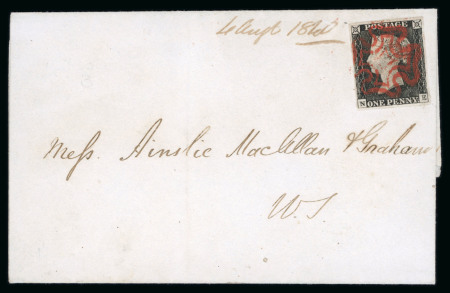 4 Augt 1840
POSTAGE
N
ONE PENNY
Messrs Ainslie Macallan & Graham
W.S